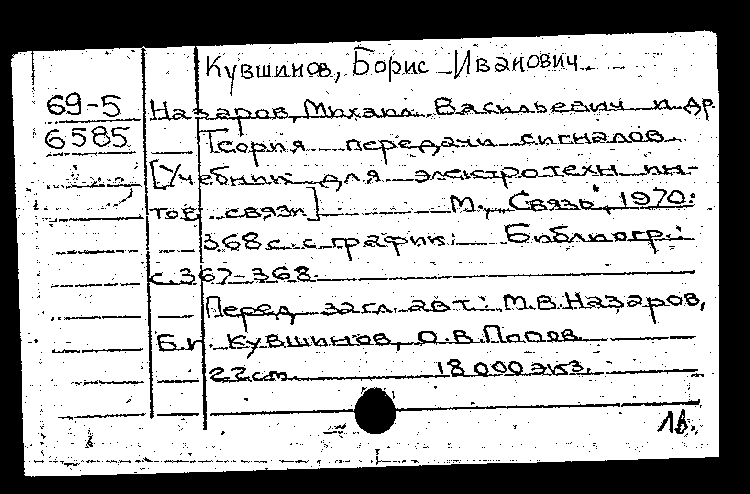 Кувшинов, Борис Иванович
69-5 Назаров, Михаил Васильевич и др
6585 Теория передачи сигналов.
[Учебник для электротехн ин-
тов связи] М., "Связь", 1970.
368 с. с график. Библиогр.:
с. 367-368.
Перед загл. авт.: М.В. Назаров,
Б.И. Кувшинов, О.В. Попов
22 см. 18 000 экз.
1в.